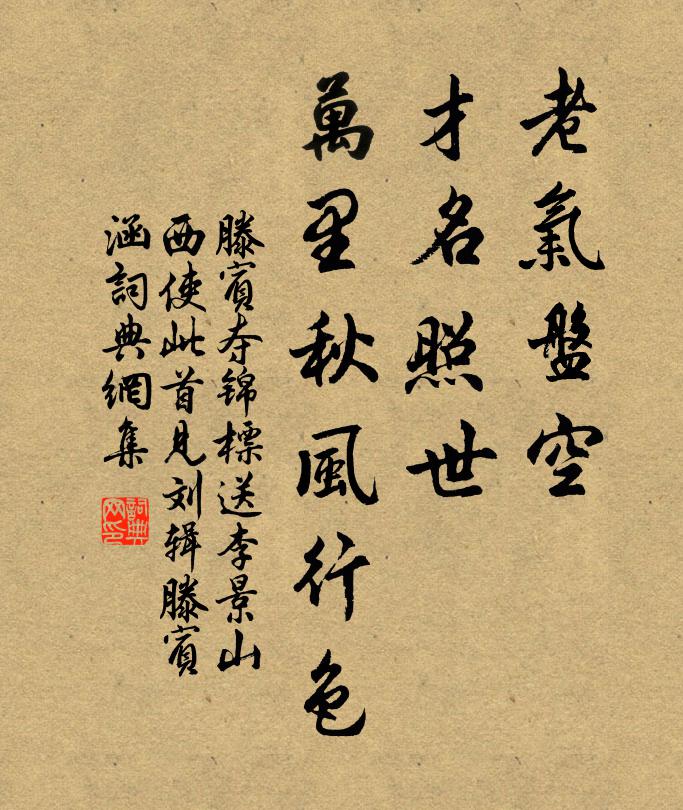 老氣盤空
才名照世
萬里秋風行色
滕賓夺锦標送李景山
西使此首見刘辑滕賓
涵詞典網集
詞典
网印